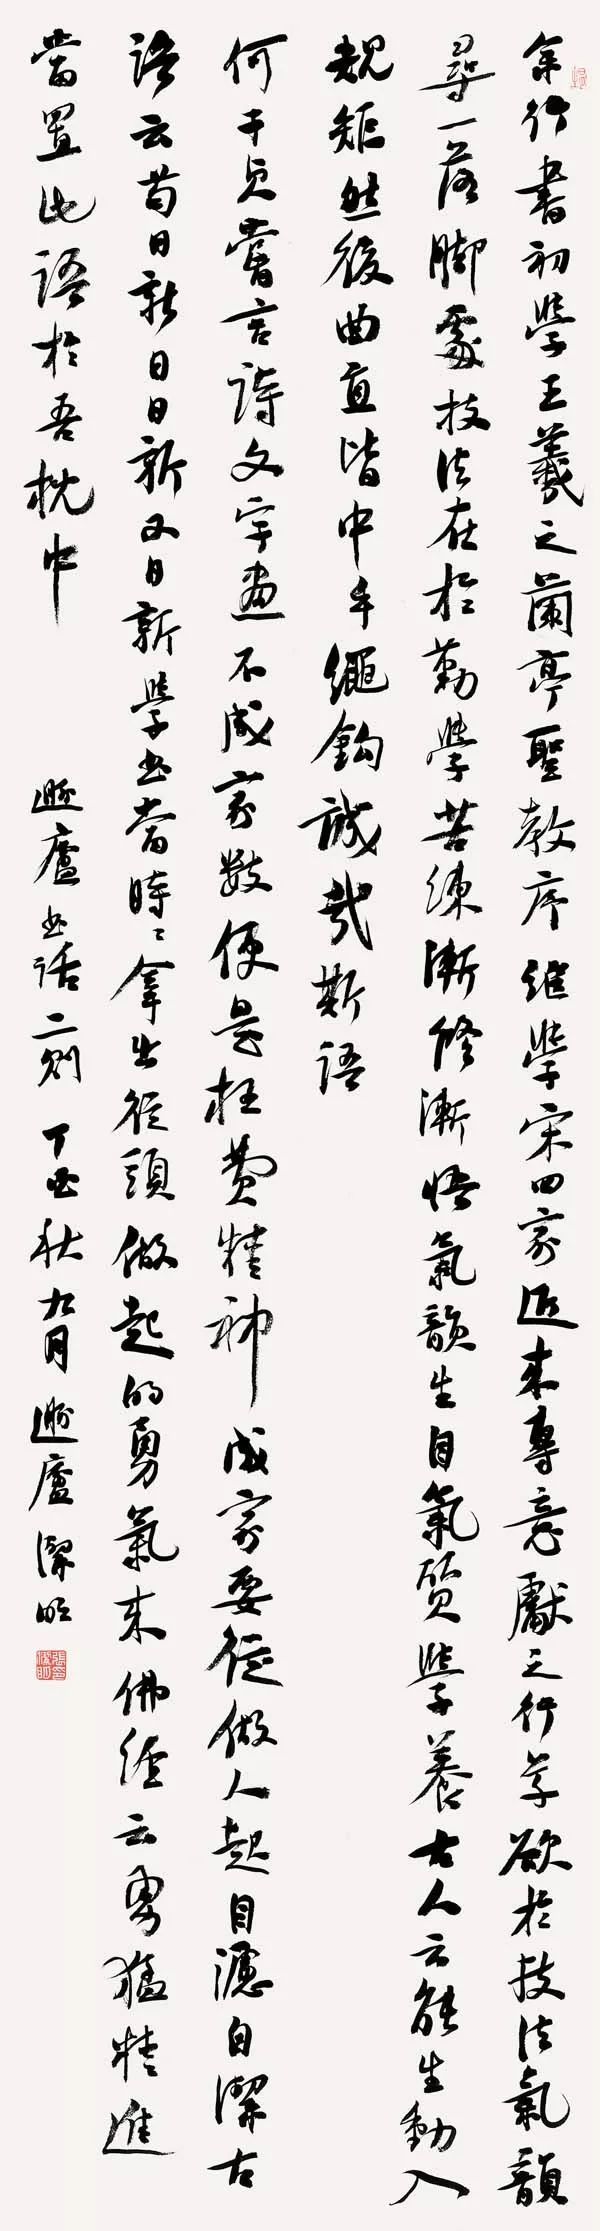 余行书初學王羲之蘭亭聖教序继學宋四家近来專意獻之行草欲於技法氣韻
尋一落脚處技法在於勤學苦练渐修渐悟氣韻生自氣質學養古人云能生動入
规矩然後曲直皆中乎繩鉤诚哉斯语
何子贞嘗言詩文字画不成家数便是枉费精神成家要從做人起自濯自潔古
语云苟日新日日新又日新學书當時〻拿出從頭做起的勇氣来佛经云勇猛精進
當置此语於吾枕中
遯廬书话二则 丁酉秋九月 遯廬潔明